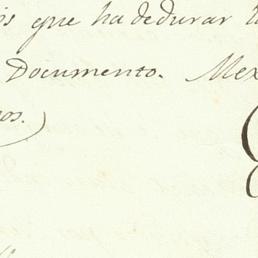 que ha dedurar
Documento. Mex
os.)